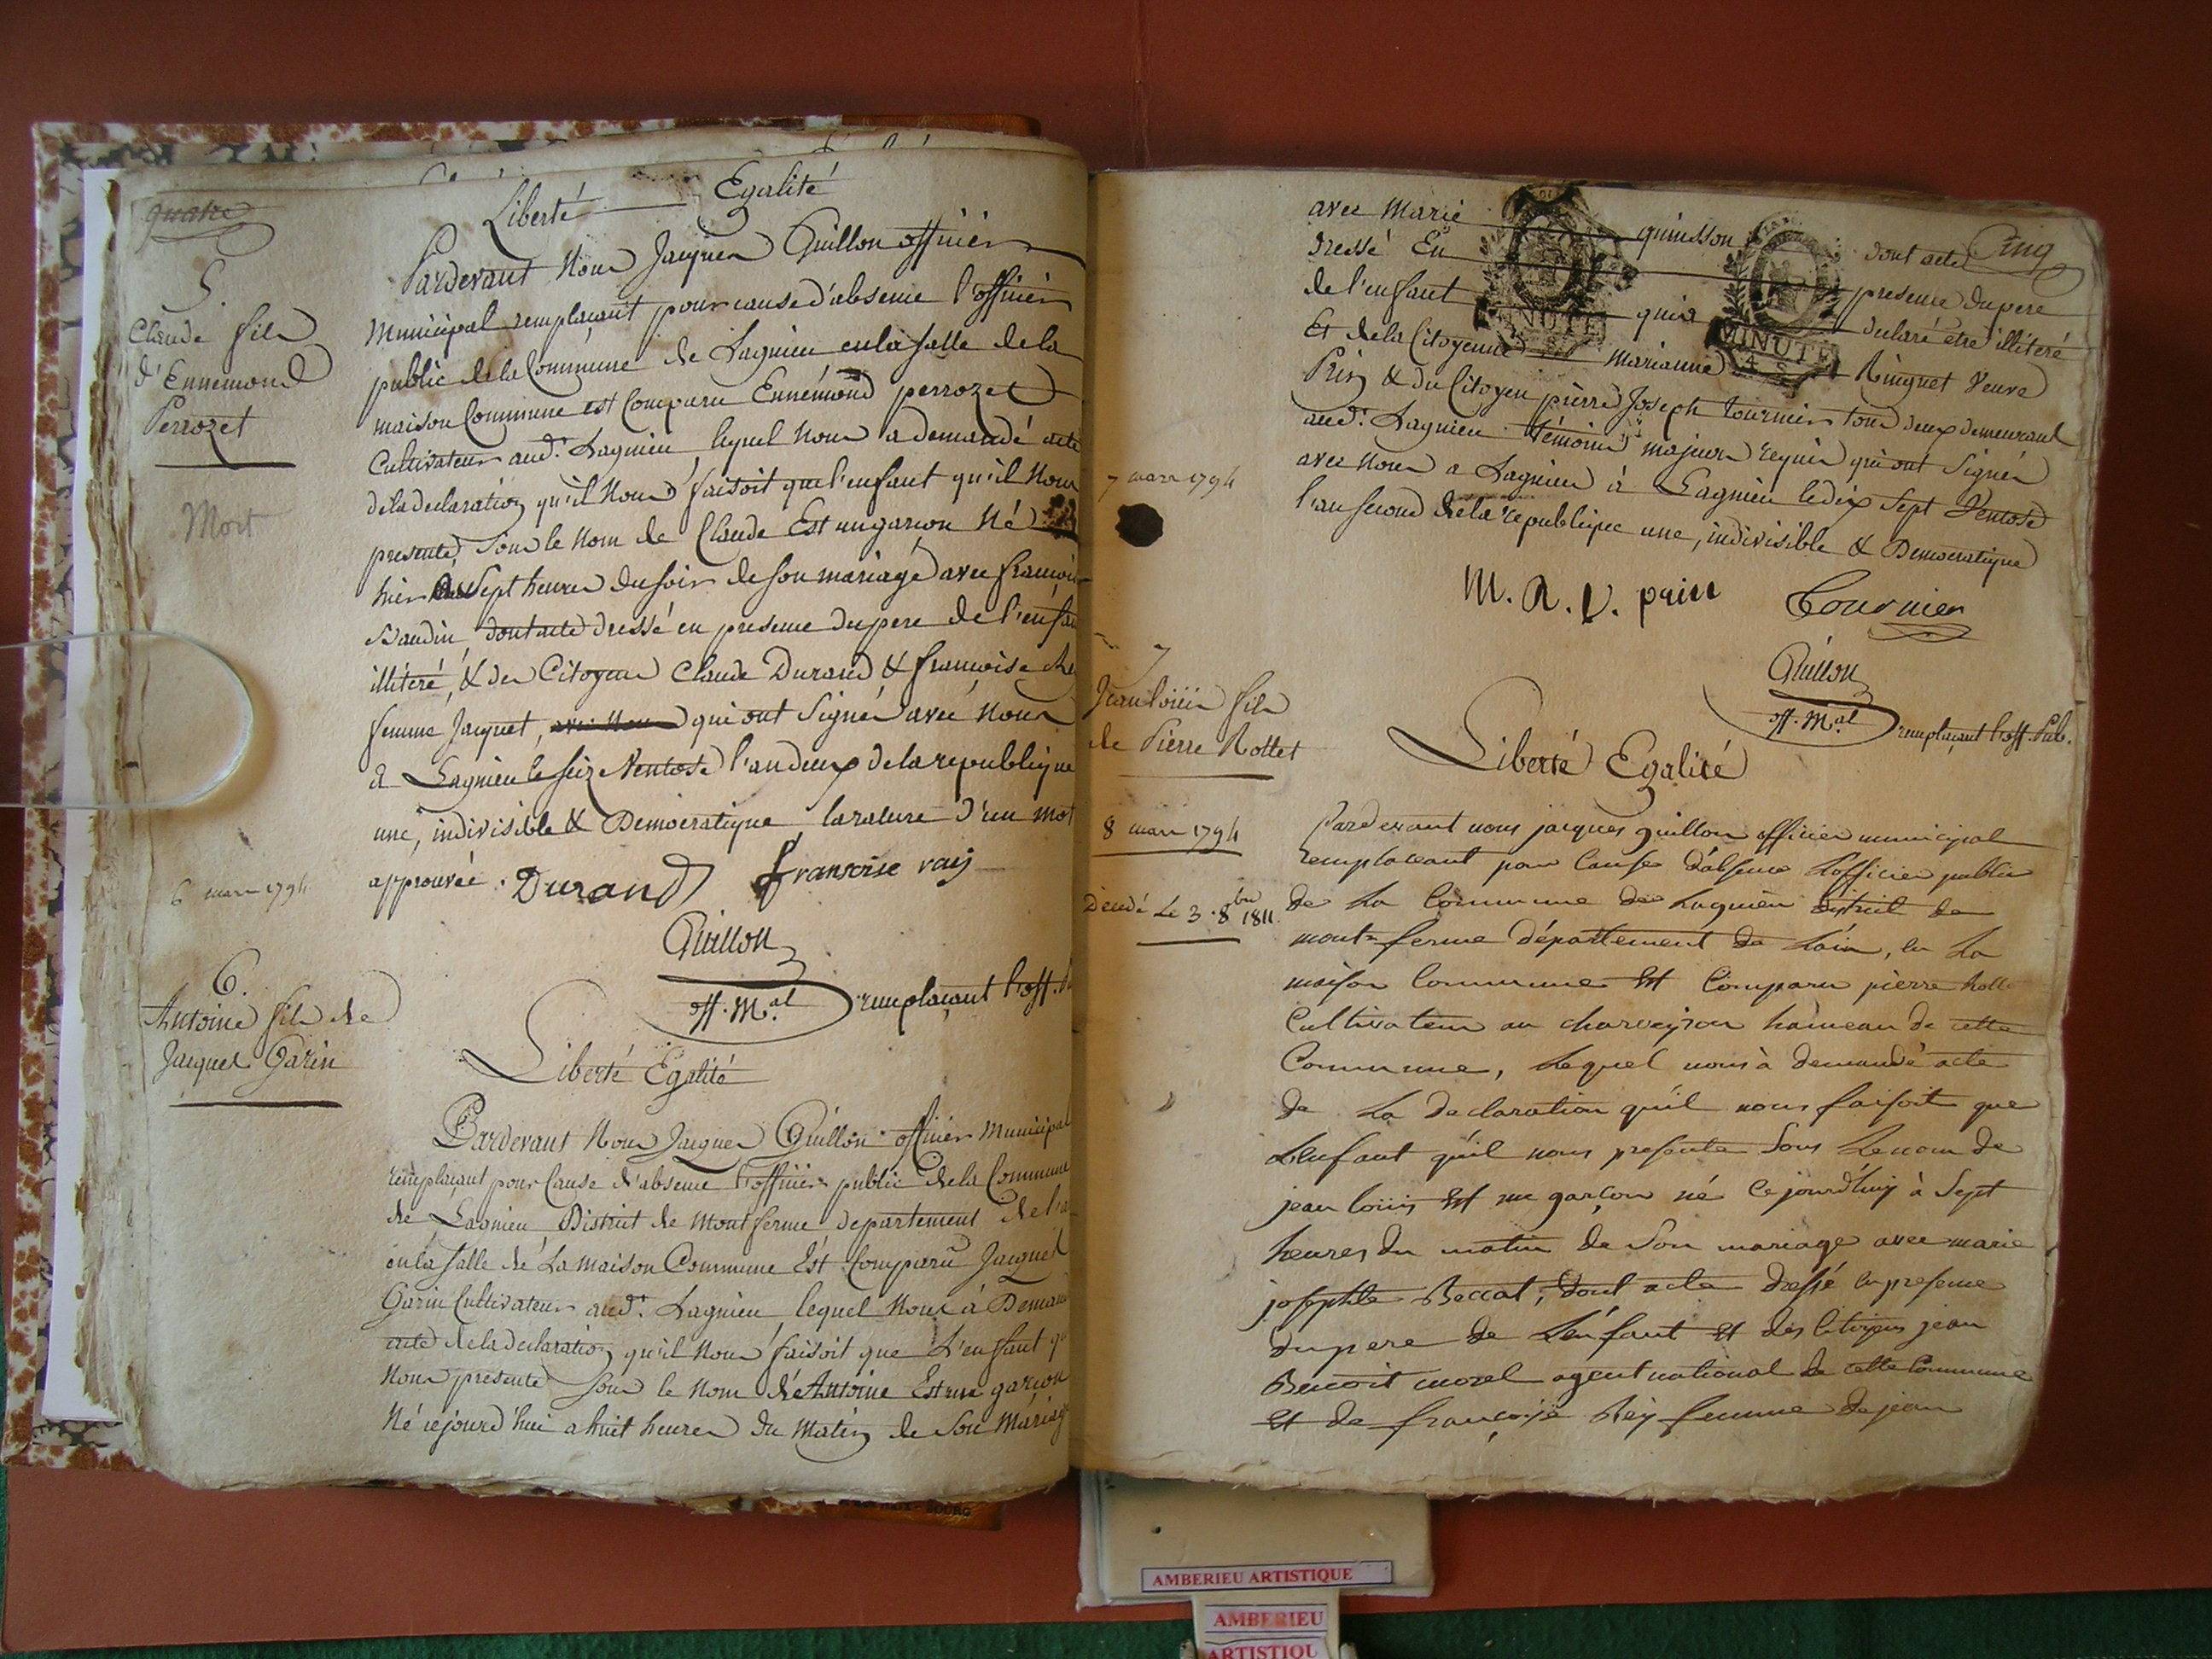 quatre
Liberté Egalité
5.
Claude fils
d'Ennemond
Perrozet
Mort
Pardevant Nous Jacques Guillon officier
Municipal remplaçant pour cause d'absence l'officier
public de la Commune de Lagnieu en la salle de la
maison Commune est Comparu Ennémond perrozet
Cultivateur aud.t Lagnieu, lequel Nous a demandé acte
de la declaration qu'il Nous faisoit que l'enfant qu'il Nous
presente, sous le Nom de Claude Est un garcon Né
hier sept heures du soir de son mariage avec françoise
Baudin, dont acte dressé en presence du pere de l'enfant
illiteré, & des Citoyens Claude Durand & françoise
femme Jacquet, avec Nous qui ont Signés avec Nous
à Lagnieu le seize Ventose l'an deux de la republique
une, indivisible & Democratique la rature d'un mot
approuvée. Durand fransoise raij
6 mars 1794
Guillon
off. M.al remplaçant l'off.
6.
Antoine fils de
Jacques Garin
Liberté Egalité
Pardevant Nous Jacques Guillon officier Municipal
remplaçant pour Cause d'absence l'officier public de la Commune
de Lagnieu, District de Montferme, departement de l'
en la salle de La maison Commune Est Comparu Jacques
Garin Cultivateur aud.t Lagnieu, lequel Nous à Demandé
acte de la declaration qu'il Nous faisoit que L'enfant
Nous presente sous le Nom de Antoine Est un garçon
Né cejourd'hui a huit heures du Matin de Son Mariage
Cinq
avec Marie quinsson dont acte
dressé En presence du pere
de l'enfant qui a declaré etre illiteré
Et de la Citoyenne Marianne Ringuet Veuve
Prin & du Citoyen pierre Joseph tournier tous deux demeurant
aud.t Lagnieu témoins majeurs requis qui ont Signés
avec Nous a Lagnieu à Lagnieu le dix Sept Ventose
l'an second de la republique une, indivisible & Democratique
MINUTE
MINUTE
7 mars 1794
M. R. V. prin Tournier
Guillon
off. M.al remplaçant l'off. Pub.
7
Jean louis fils
de Pierre Rollet
8 mars 1794
Décédé Le 3. 8.bre 1811
Liberté Egalité
Pardevant nous jacques guillon officier municipal
remplaceant pour Cause d'absence L'officier public
de La Commune de Lagnieu district de
mont-ferme département de Lain, en La
maison Commune Est Comparu pierre
Cultivateur au charveyron hameau de cette
Commune, Lequel nous à demandé acte
de La declaration quil nous faisoit que
Lenfant quil nous presente Sous Le nom de
jean louis Est un garçon né Cejourd'huij à Sept
heures du matin de Son mariage avec marie
josephte Beccat, dont acte dressé en presence
du pere de L'enfant Et des Citoyens jean
Benoit morel agent national de cette Commune
Et de françoise Reÿ femme de jean
AMBERIEU ARTISTIQUE
AMBERIEU
ARTISTIQU